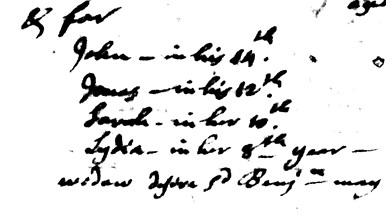 & for
John – in his 14th.
Jonas – in his 12th.
Sarah – in her 10.th
Lydia – in her 8th year –
widow sd Benjn may